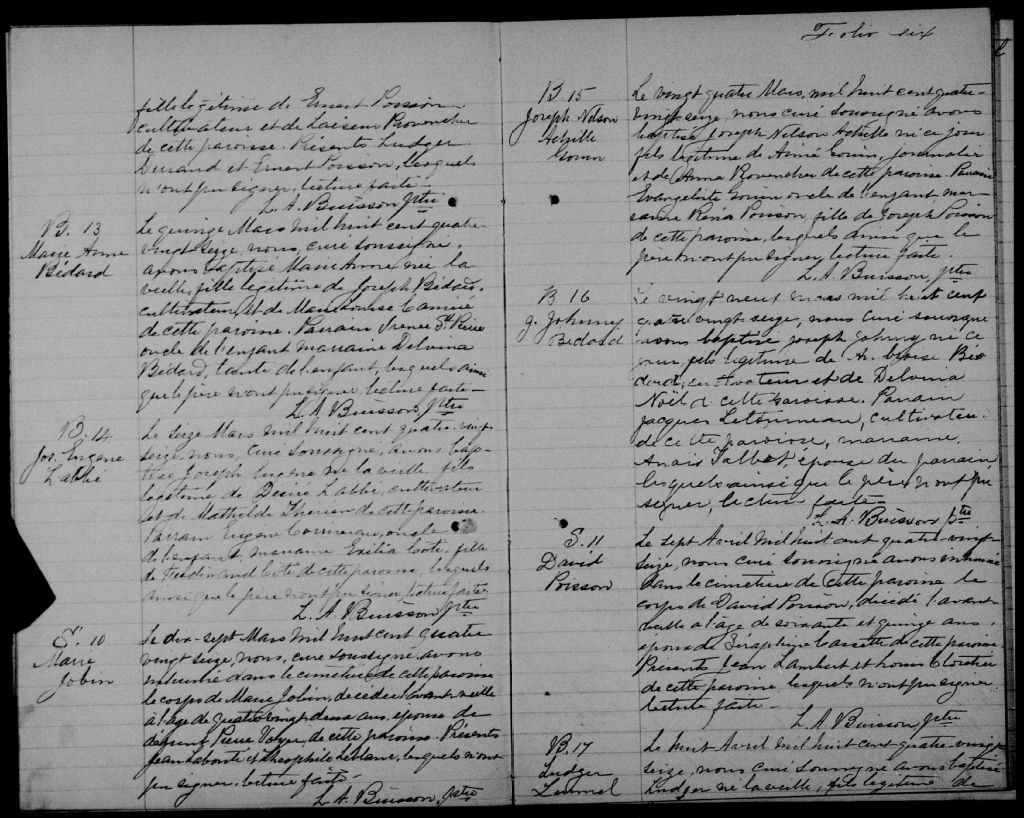 fille légitime de Ernest Poisson
cultivateur et de Provencher
de cette paroisse. Présents Ludger
Durand et Ernest Poisson, lesquels
n'ont pu signer, lecture faite.
L. A. Buisson, Ptre
B. 13
Marie Anne
Bédard
Le quinze Mars mil huit cent quatre-
vingt seize, nous, curé soussigné,
avons baptisé Marie Anne née la
veille, fille légitime de Joseph Bédard,
cultivateur, et de Marie Louise
de cette paroisse. Parrain St. Pierre
oncle de l'enfant marraine Delvina
Bédard, tante de l'enfant, lesquels ainsi
que le père n'ont pu signer, lecture faite
L. A. Buisson, Ptre
B. 14
Jos. Eugène
Labbé
Le seize Mars mil huit cent quatre-vingt
seize, nous, curé soussigné, avons bap-
tisé Joseph Eugène né la veille, fils
légitime de Désiré Labbé, cultivateur
et de Mathilde Therien de cette paroisse
Parrain Eugène oncle
de l'enfant, marraine Exilia Coté, fille
de Ferdinand Coté de cette paroisse, lesquels
ainsi que le père n'ont pu signer, lecture faite.
L. A. Buisson, Ptre
S. 10
Marie
Jobin
Le dix-sept Mars mil huit cent quatre
vingt seize, nous, curé soussigné avons
inhumé dans le cimetière de cette paroisse
le corps de Marie Jobin, décédée l'avant veille
à l'âge de quatre vingt deux ans, épouse de
défunt Pierre de cette paroisse. Présents
Jean Laborité et Théophile Leblanc, lesquels n'ont
pu signer, lecture faite.
L. A. Buisson, Ptre
Folio six
B. 15
Joseph Nelson
Achille
Gouin
Le vingt quatre Mars, mil huit cent quatre-
vingt seize, nous curé soussigné avons
baptisé Joseph Nelson Achille né ce jour
fils légitime de Aimé Gouin, journalier
et de Anna Provencher de cette paroisse. Parrain
Evangeliste Gouin oncle de l'enfant, mar-
raine Réna Poisson, fille de Joseph Poisson
de cette paroisse, lesquels ainsi que le
père n'ont pu signer, lecture faite.
L. A. Buisson, Ptre
B. 16
J. Johnny
Bédard
Le vingt neuf mars mil huit cent
quatre vingt seize, nous curé soussigné
avons baptisé Joseph Johnny né ce
jour fils légitime de Ambroise Bé-
dard, cultivateur et de Delvina
Noël de cette paroisse. Parrain
Jacques Letourneau, cultivateur
de cette paroisse, marraine,
Anaïs Talbot, épouse du parrain
lesquels ainsi que le père n'ont pu
signer, lecture faite
L. A. Buisson Ptre
S. 11
David
Poisson
Le sept Avril mil huit cent quatre-vingt
seize, nous curé soussigné avons inhumé
dans le cimetière de cette paroisse le
corps de David Poisson, décédé l'avant-
veille à l'âge de soixante et quinze ans,
époux de Séraphine de cette paroisse
Présents Jean Lambert et Cloutier
de cette paroisse, lesquels n'ont pu signer
lecture faite.
L. A. Buisson, Ptre
B. 17
Ludger
Le huit Avril mil huit cent quatre-vingt
seize, nous curé soussigné avons baptisé
Ludger né la veille, fils légitime de